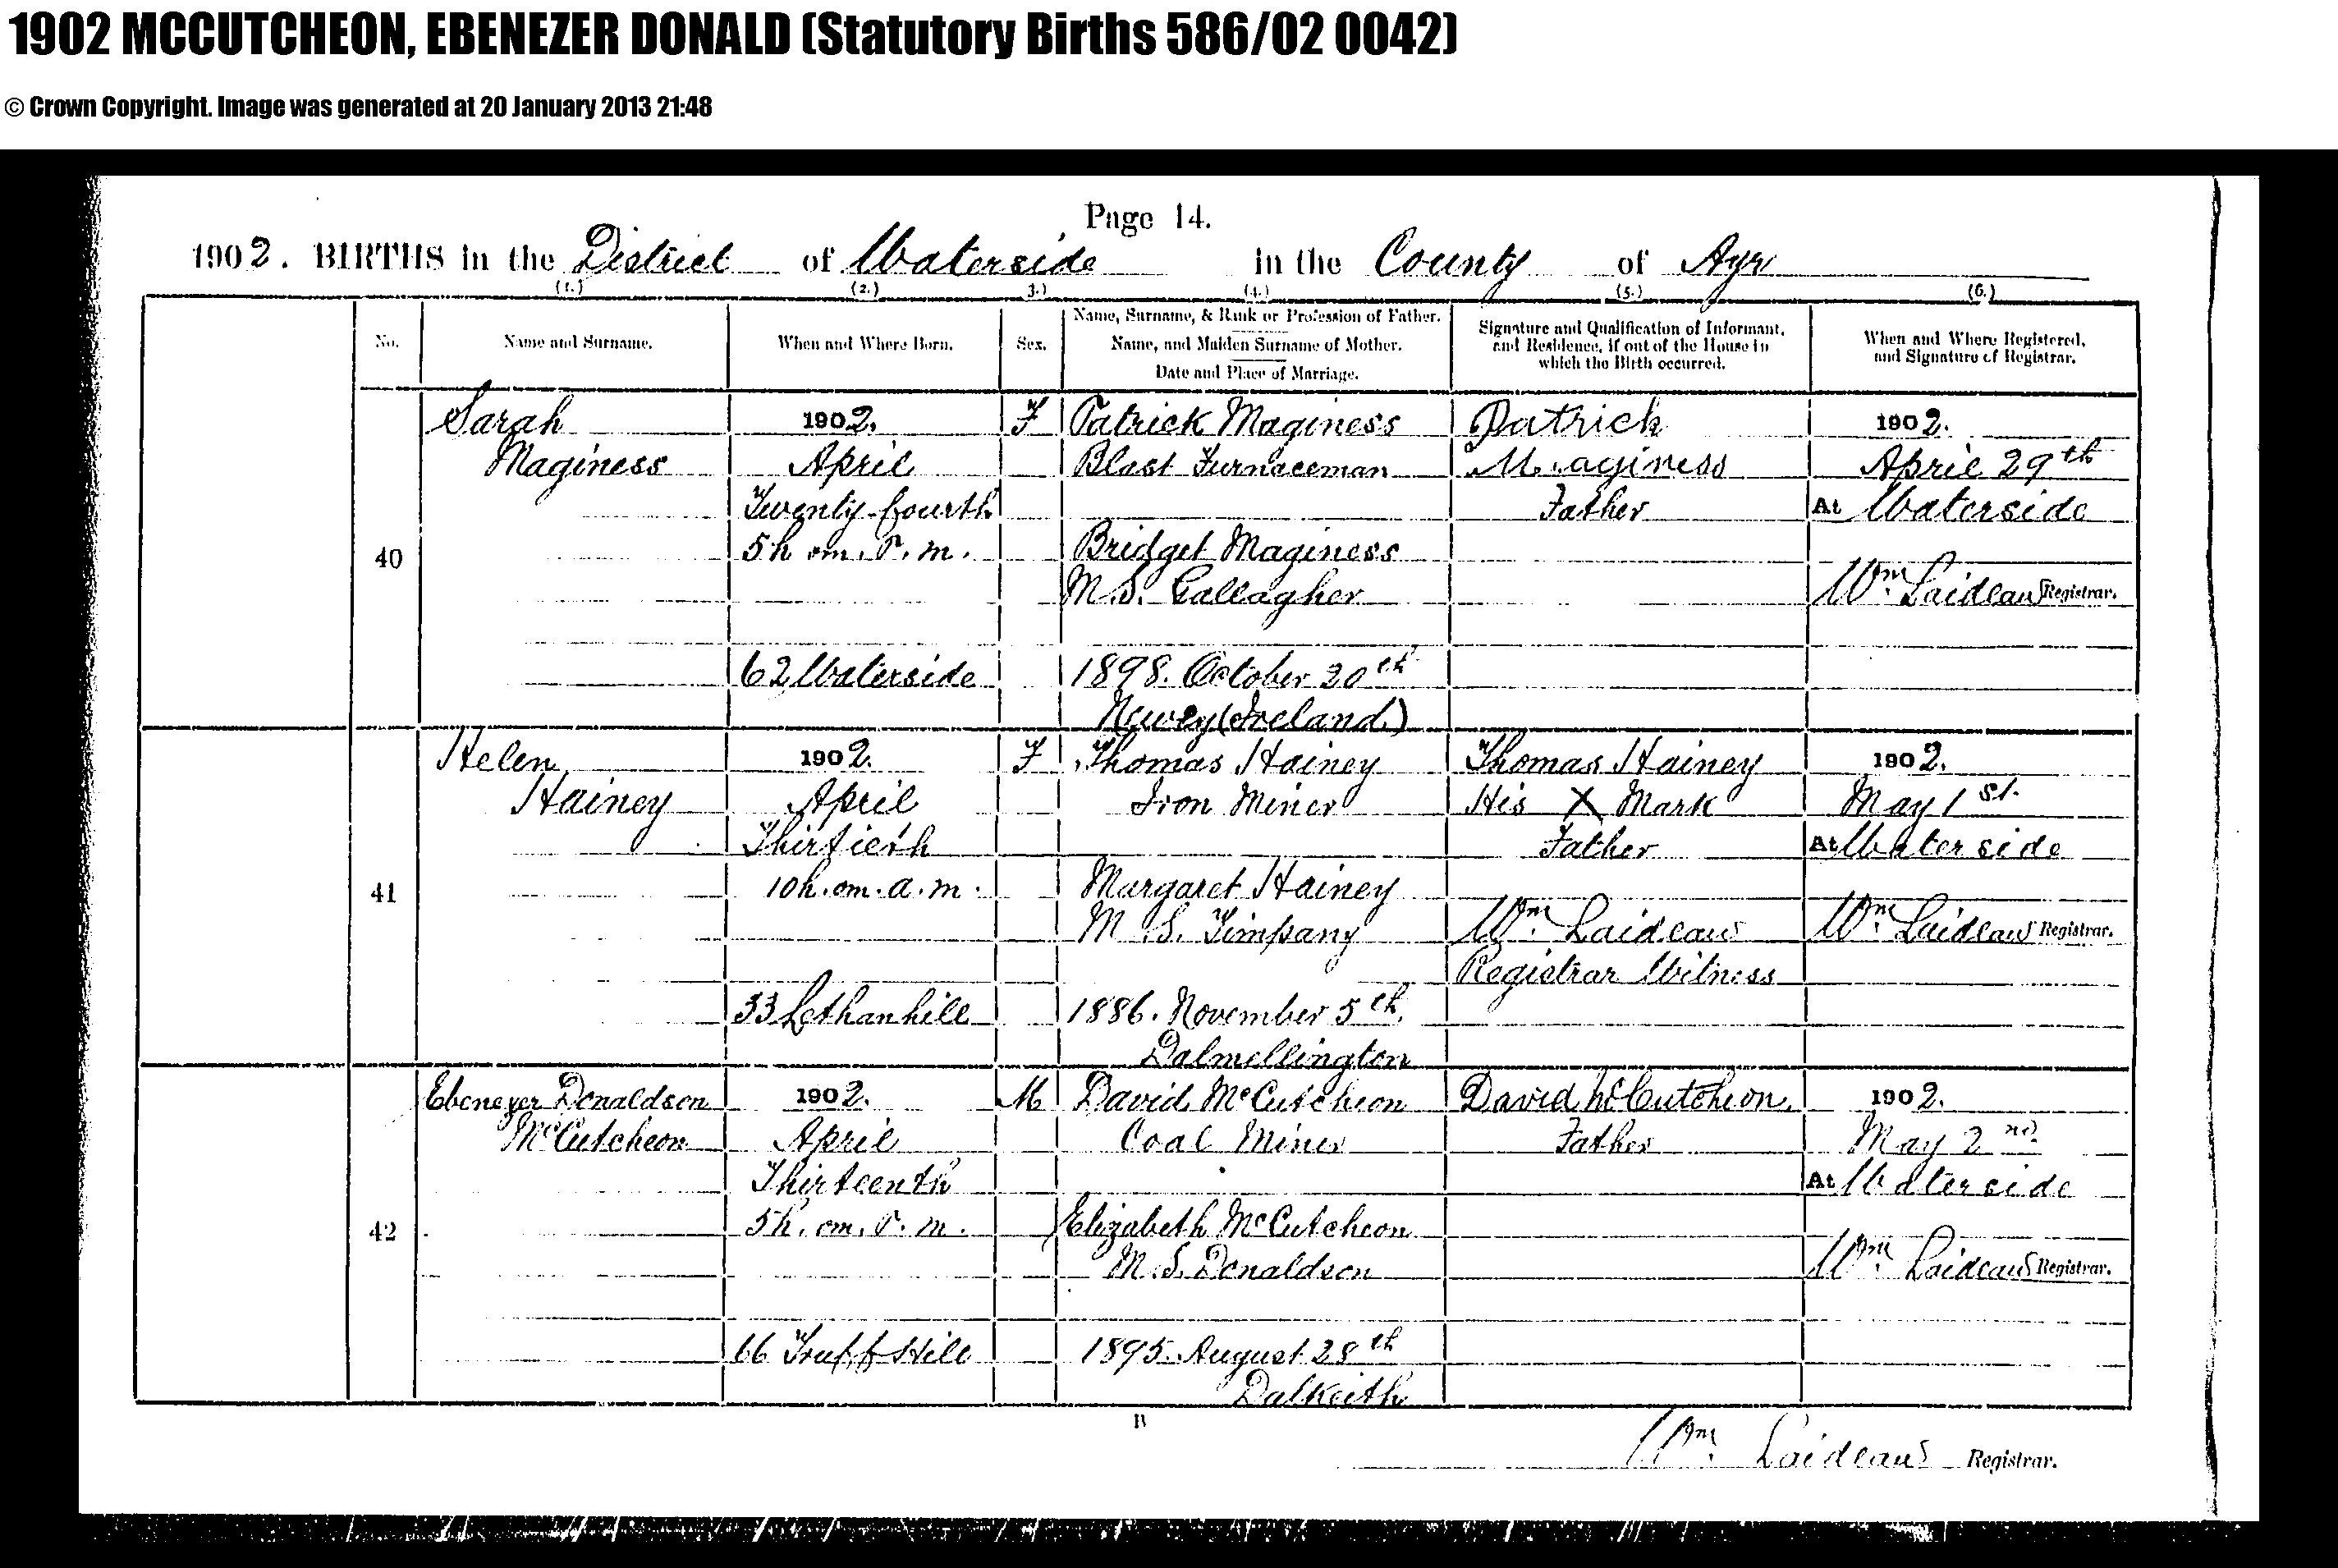 1902 MCCUTCHEON, EBENEZER DONALD (Statutory Births 586/02 0042)
© Crown Copyright. Image was generated at 20 January 2013 21:48
Page 14.
1902. BIRTHS in the District of Waterside in the County of Ayr
(1.) (2.) 3.) (4.) (5.) (6.)
No.
Name and Surname.
When and Where Born.
Sex.
Name, Surname, & Rank or Profession of Father.
Name, and Maiden Surname of Mother.
Date and Place of Marriage.
Signature and Qualification of Informant,
and Residence, if out of the House in
which the Birth occurred.
When and Where Registered,
and Signature of Registrar.
40
Sarah
Maginess
1902.
April
Twenty-fourth
5h om. P.m.
62 Waterside
F
Patrick Maginess
Blast Furnaceman
Bridget Maginess
M.S. Gallagher
1898. October 20th
Newry (Ireland.)
Patrick
Maginess
Father
1902.
April 29th
At Waterside
Wm. Laidlaw Registrar.
41
Helen
Hainey
1902.
April
Thirtieth
10h. om. a.m.
33 Lethanhill
F
Thomas Hainey
Iron Miner
Margaret Hainey
M.S. Timpany
1886. November 5th.
Dalmellington
Thomas Hainey
His X Mark
Father
Wm. Laidlaw
Registrar Witness
1902.
May 1st.
At Waterside
Wm. Laidlaw Registrar.
42
Ebenezer Donaldson
McCutcheon
1902.
April
Thirteenth
5h. om. P.m.
66 Truff Hill
M
David McCutcheon
Coal Miner
Elizabeth McCutcheon
M.S. Donaldson
1895. August 28th
Dalkeith
David McCutcheon.
Father
1902.
May 2nd.
At Waterside
Wm. Laidlaw Registrar.
B
Wm. Laidlaw Registrar.